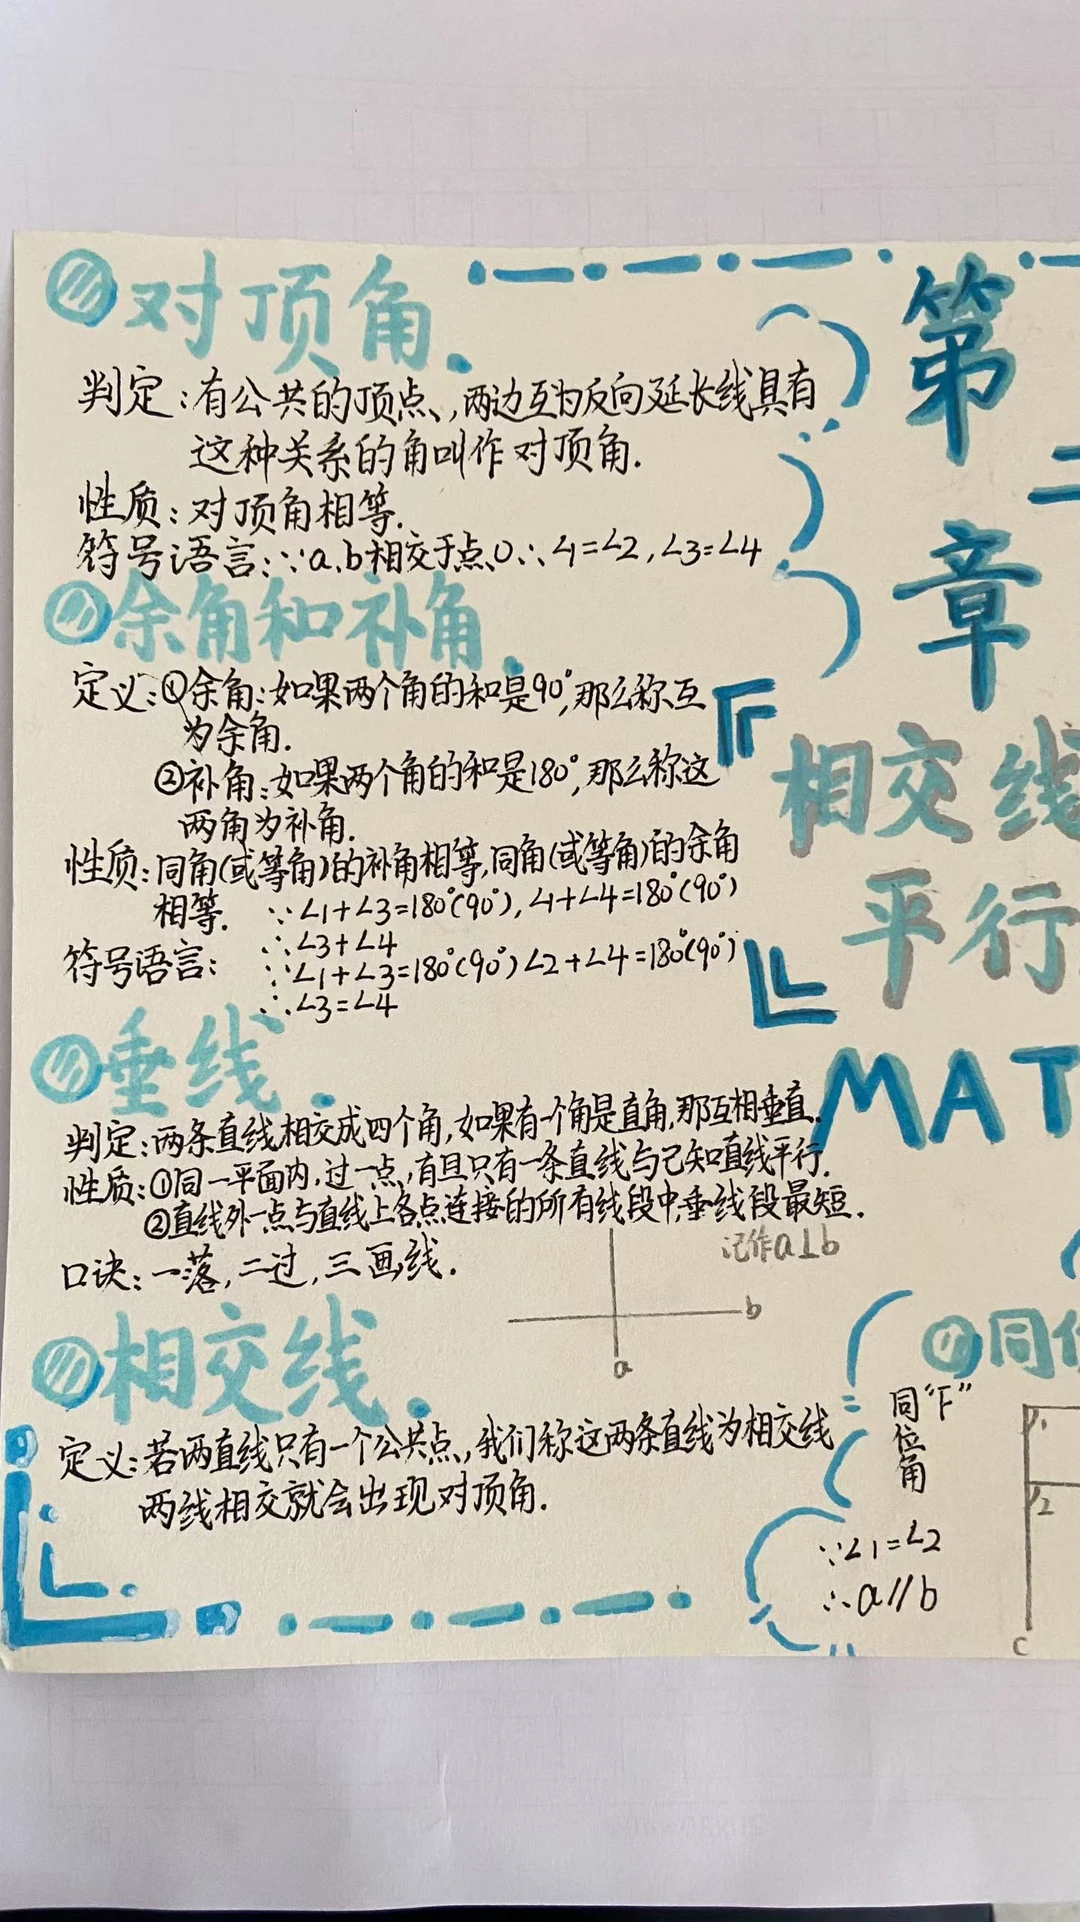 对顶角.
判定:有公共的顶点,两边互为反向延长线具有
这种关系的角叫作对顶角.
性质:对顶角相等.
符号语言:∵a、b相交于点O∴∠1=∠2,∠3=∠4
余角和补角.
定义:①余角:如果两个角的和是90°,那么称互
为余角.
②补角:如果两个角的和是180°,那么称这
两角为补角.
性质:同角(或等角)的补角相等,同角(或等角)的余角
相等.
∵∠1+∠3=180°(90°),∠1+∠4=180°(90°)
∴∠3+∠4
符号语言:
∵∠1+∠3=180°(90°)∠2+∠4=180°(90°)
∴∠3=∠4
垂线.
判定:两条直线相交成四个角,如果有一个角是直角,那互相垂直.
性质:①同一平面内,过一点,有且只有一条直线与已知直线平行.
②直线外一点与直线上各点连接的所有线段中,垂线段最短.
口诀:一落,二过,三画线.
记作a⊥b
b
a
相交线.
定义:若两直线只有一个公共点,我们称这两条直线为相交线
两线相交就会出现对顶角.
第二
章
『相交线
平行
』
MAT
同位
同“F”
位
角
1
2
∵∠1=∠2
∴a//b
c